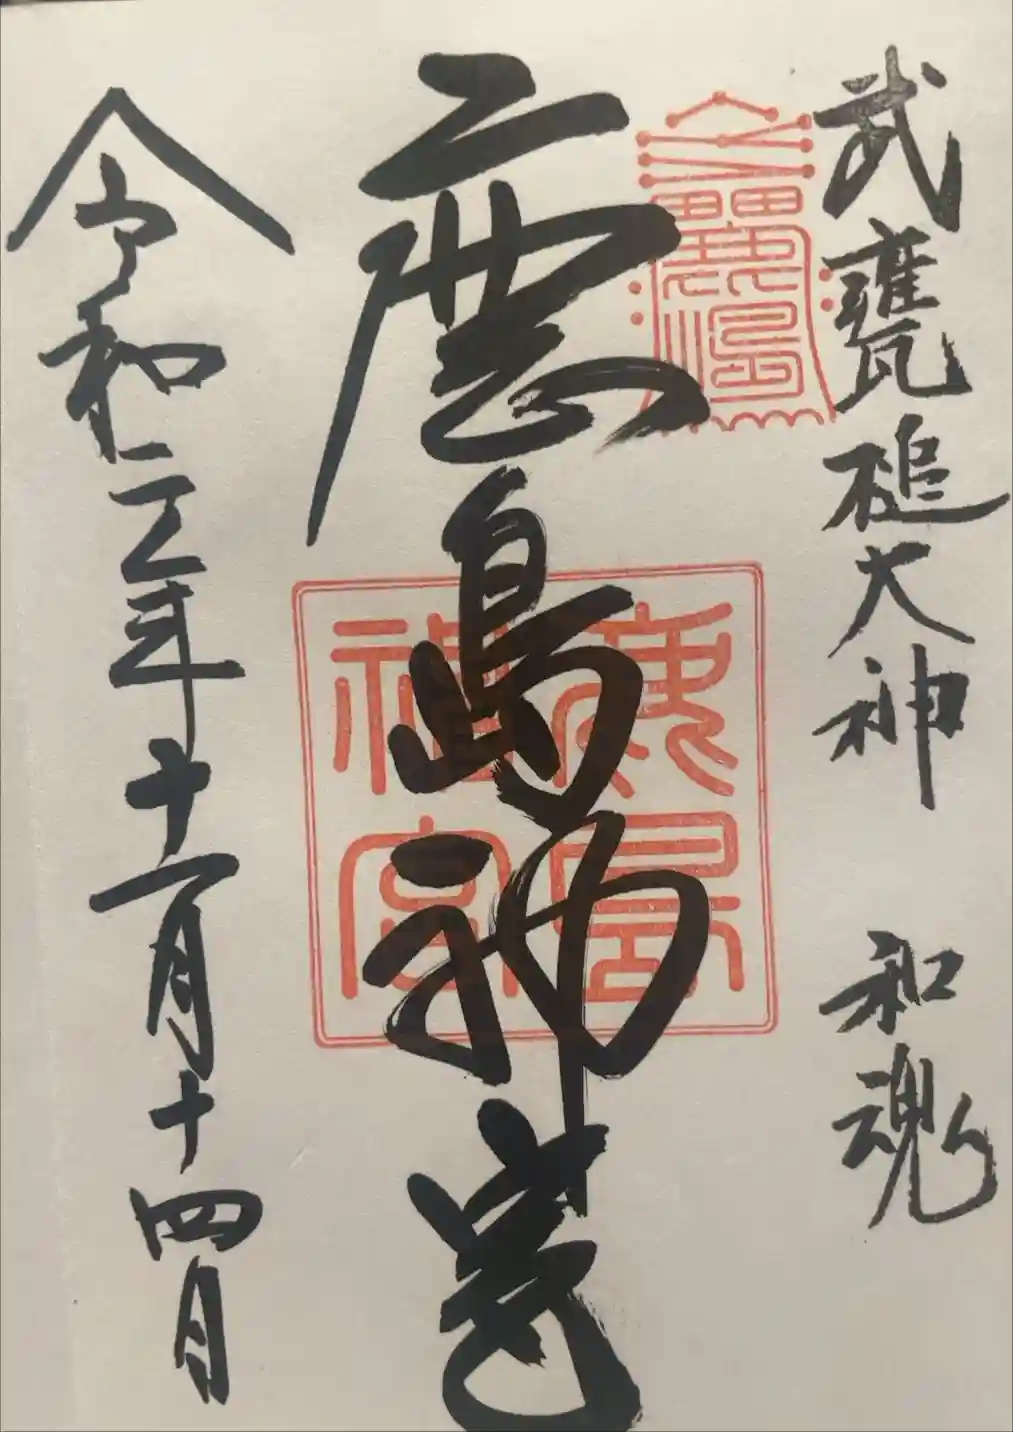 武甕槌大神　和魂
鹿島神宮
鹿島
神宮
令和元年十一月十四日